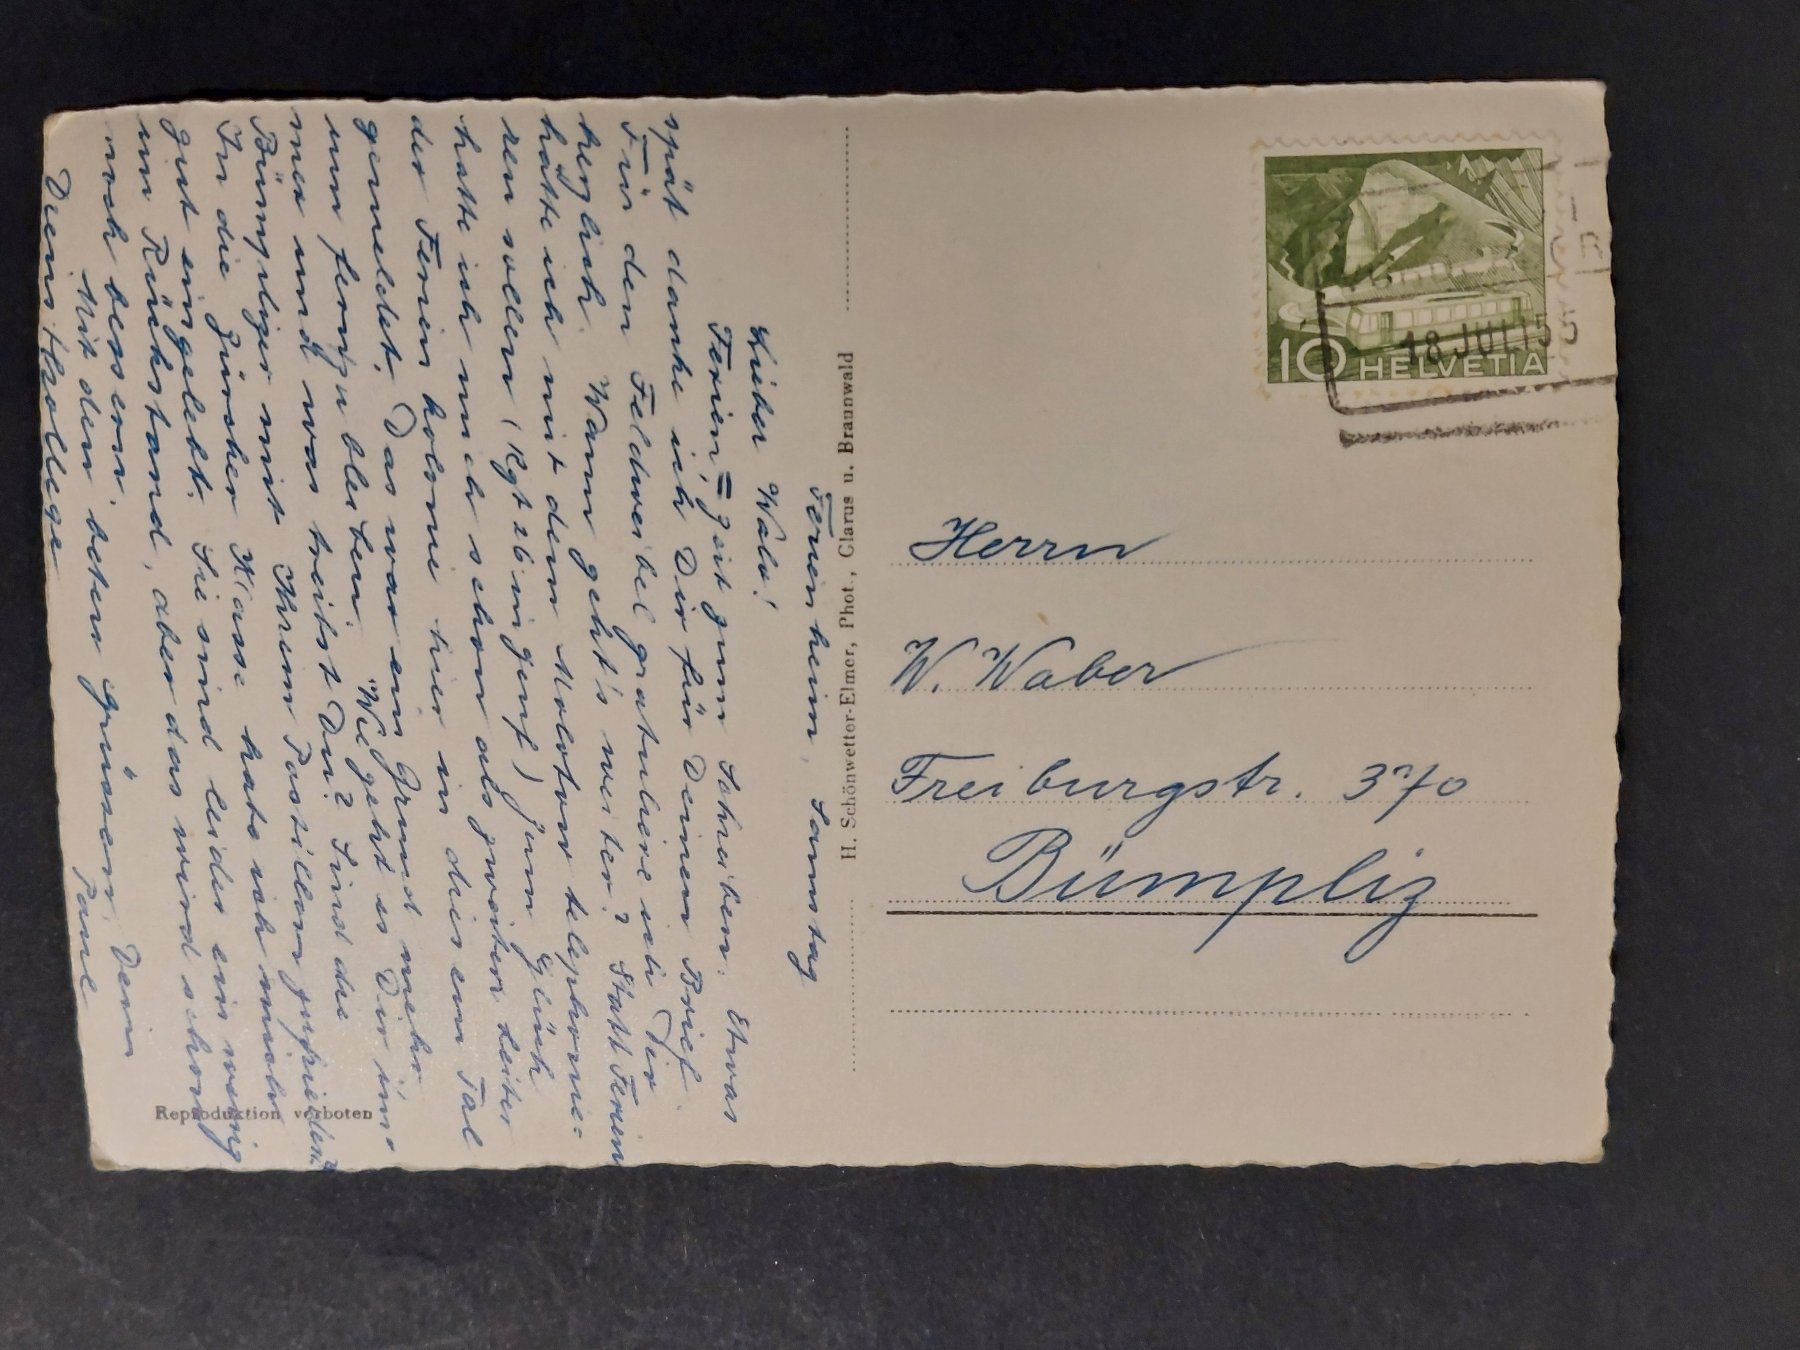 Ferienheim, Samstag
Lieber Walo!
Ferien = Zeit zum Schreiben. Etwas
spät danke ich Dir für Deinen Brief.
Für den Feldweibel gratuliere ich Dir
herzlich. Wann geht's weiter? Statt Ferien
hätte ich mit dem telephonie=
ren sollen (Rgt 26 in Genf) zum Glück
hatte ich mich schon als zweiter Leiter
der Ferienkolonie hier in diesem Tal
gemeldet. Das war ein Grund mehr
um fernzubleiben. Wie geht es Dir im=
mer und was treibst Du? Sind die
Bümplizer mit ihrem zufrieden?
In die Zürcher Klasse habe ich mich
gut eingelebt. Sie sind leider ein wenig
im Rückstand, aber das wird schon
noch bessern.
Mit den besten Grüssen, Dein
Dienstkollege
H. Schönwetter-Elmer, Phot., Glarus u. Braunwald
Reproduktion verboten
10 HELVETIA
18 JUL 155
Herrn
W. Waber
Freiburgstr. 370
Bümpliz